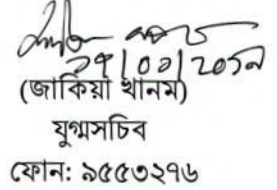 ২৭/০১/২০১৯
(জাকিয়া খানম)
যুগ্মসচিব
ফোন: ৯৫৫৩২৭৬